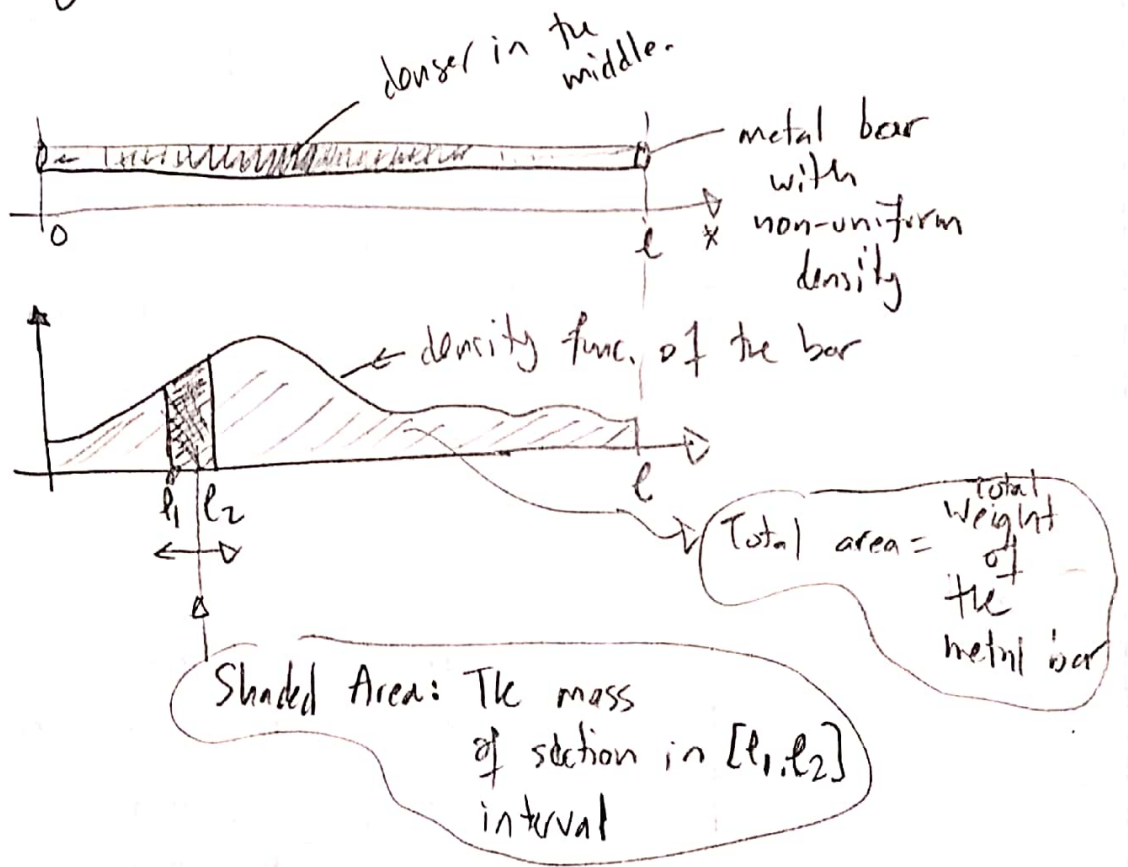 denser in the
middle.
metal bar
with
non-uniform
density
0
l
x
density func. of the bar
l1 l2
l
Total area = Total
Weight
of
the
metal bar
Shaded Area: The mass
of section in [l1, l2]
interval